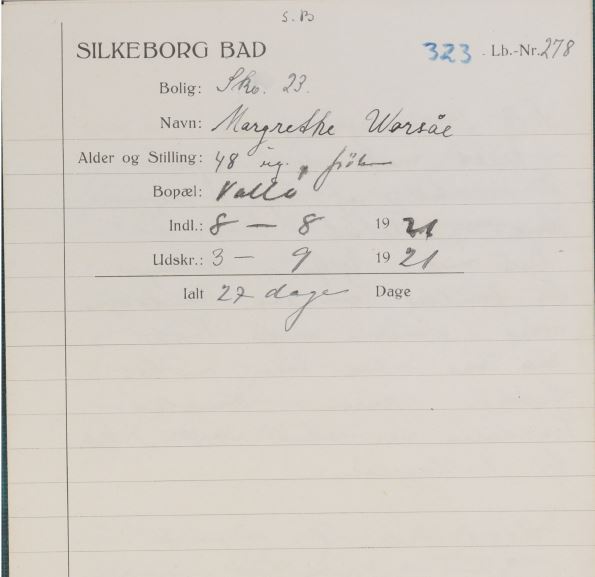 S.B
SILKEBORG BAD 323 Lb.-Nr. 278
Bolig: Sko. 23.
Navn: Margrethe Worsåe
Alder og Stilling: 48 ug. frök
Bopæl: Vallö
Indl.: 8 — 8 19 21
Udskr.: 3 — 9 19 21
Ialt 27 dage Dage